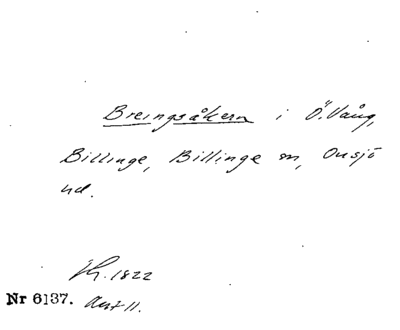 Breingsåkern i Ö. Vång,
Billinge, Billinge sn, Onsjö
hd.
1822
Nr 6137. Akt 11.